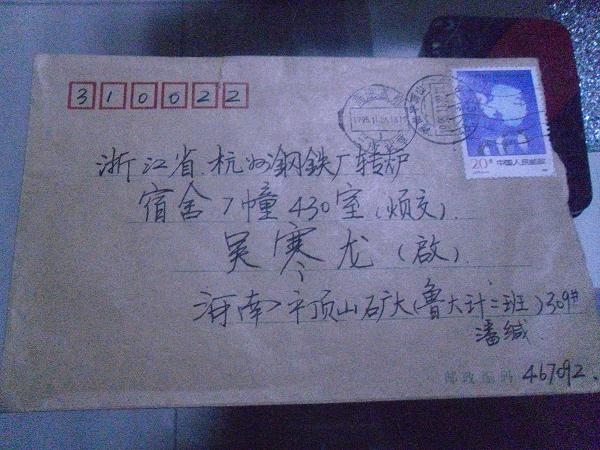 310022
浙江省杭州钢铁厂转炉
宿舍7幢430室(烦交)
吴寒龙(啟)
河南平顶山矿大(鲁大计二班)309#
潘缄
邮政编码 467092.
20分 中国人民邮政